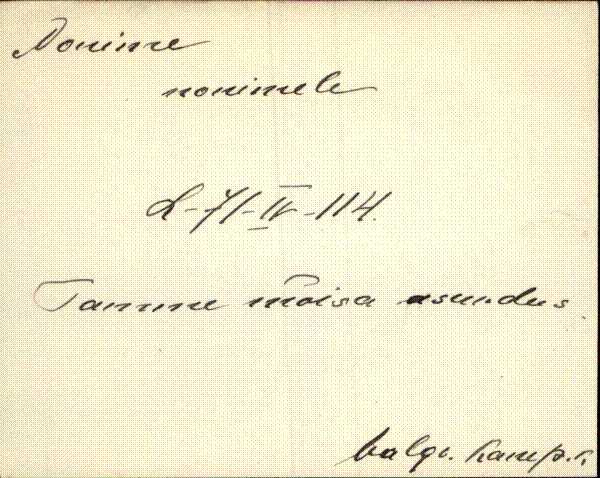 Nonime
nonimele
L-71-IV-114.
Tamme mõisa asundus.
Valgv. Kamp.k